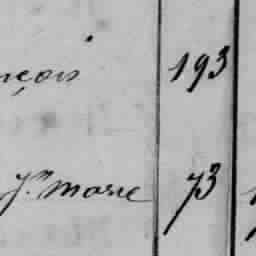 nçois 193
Jn marie 73